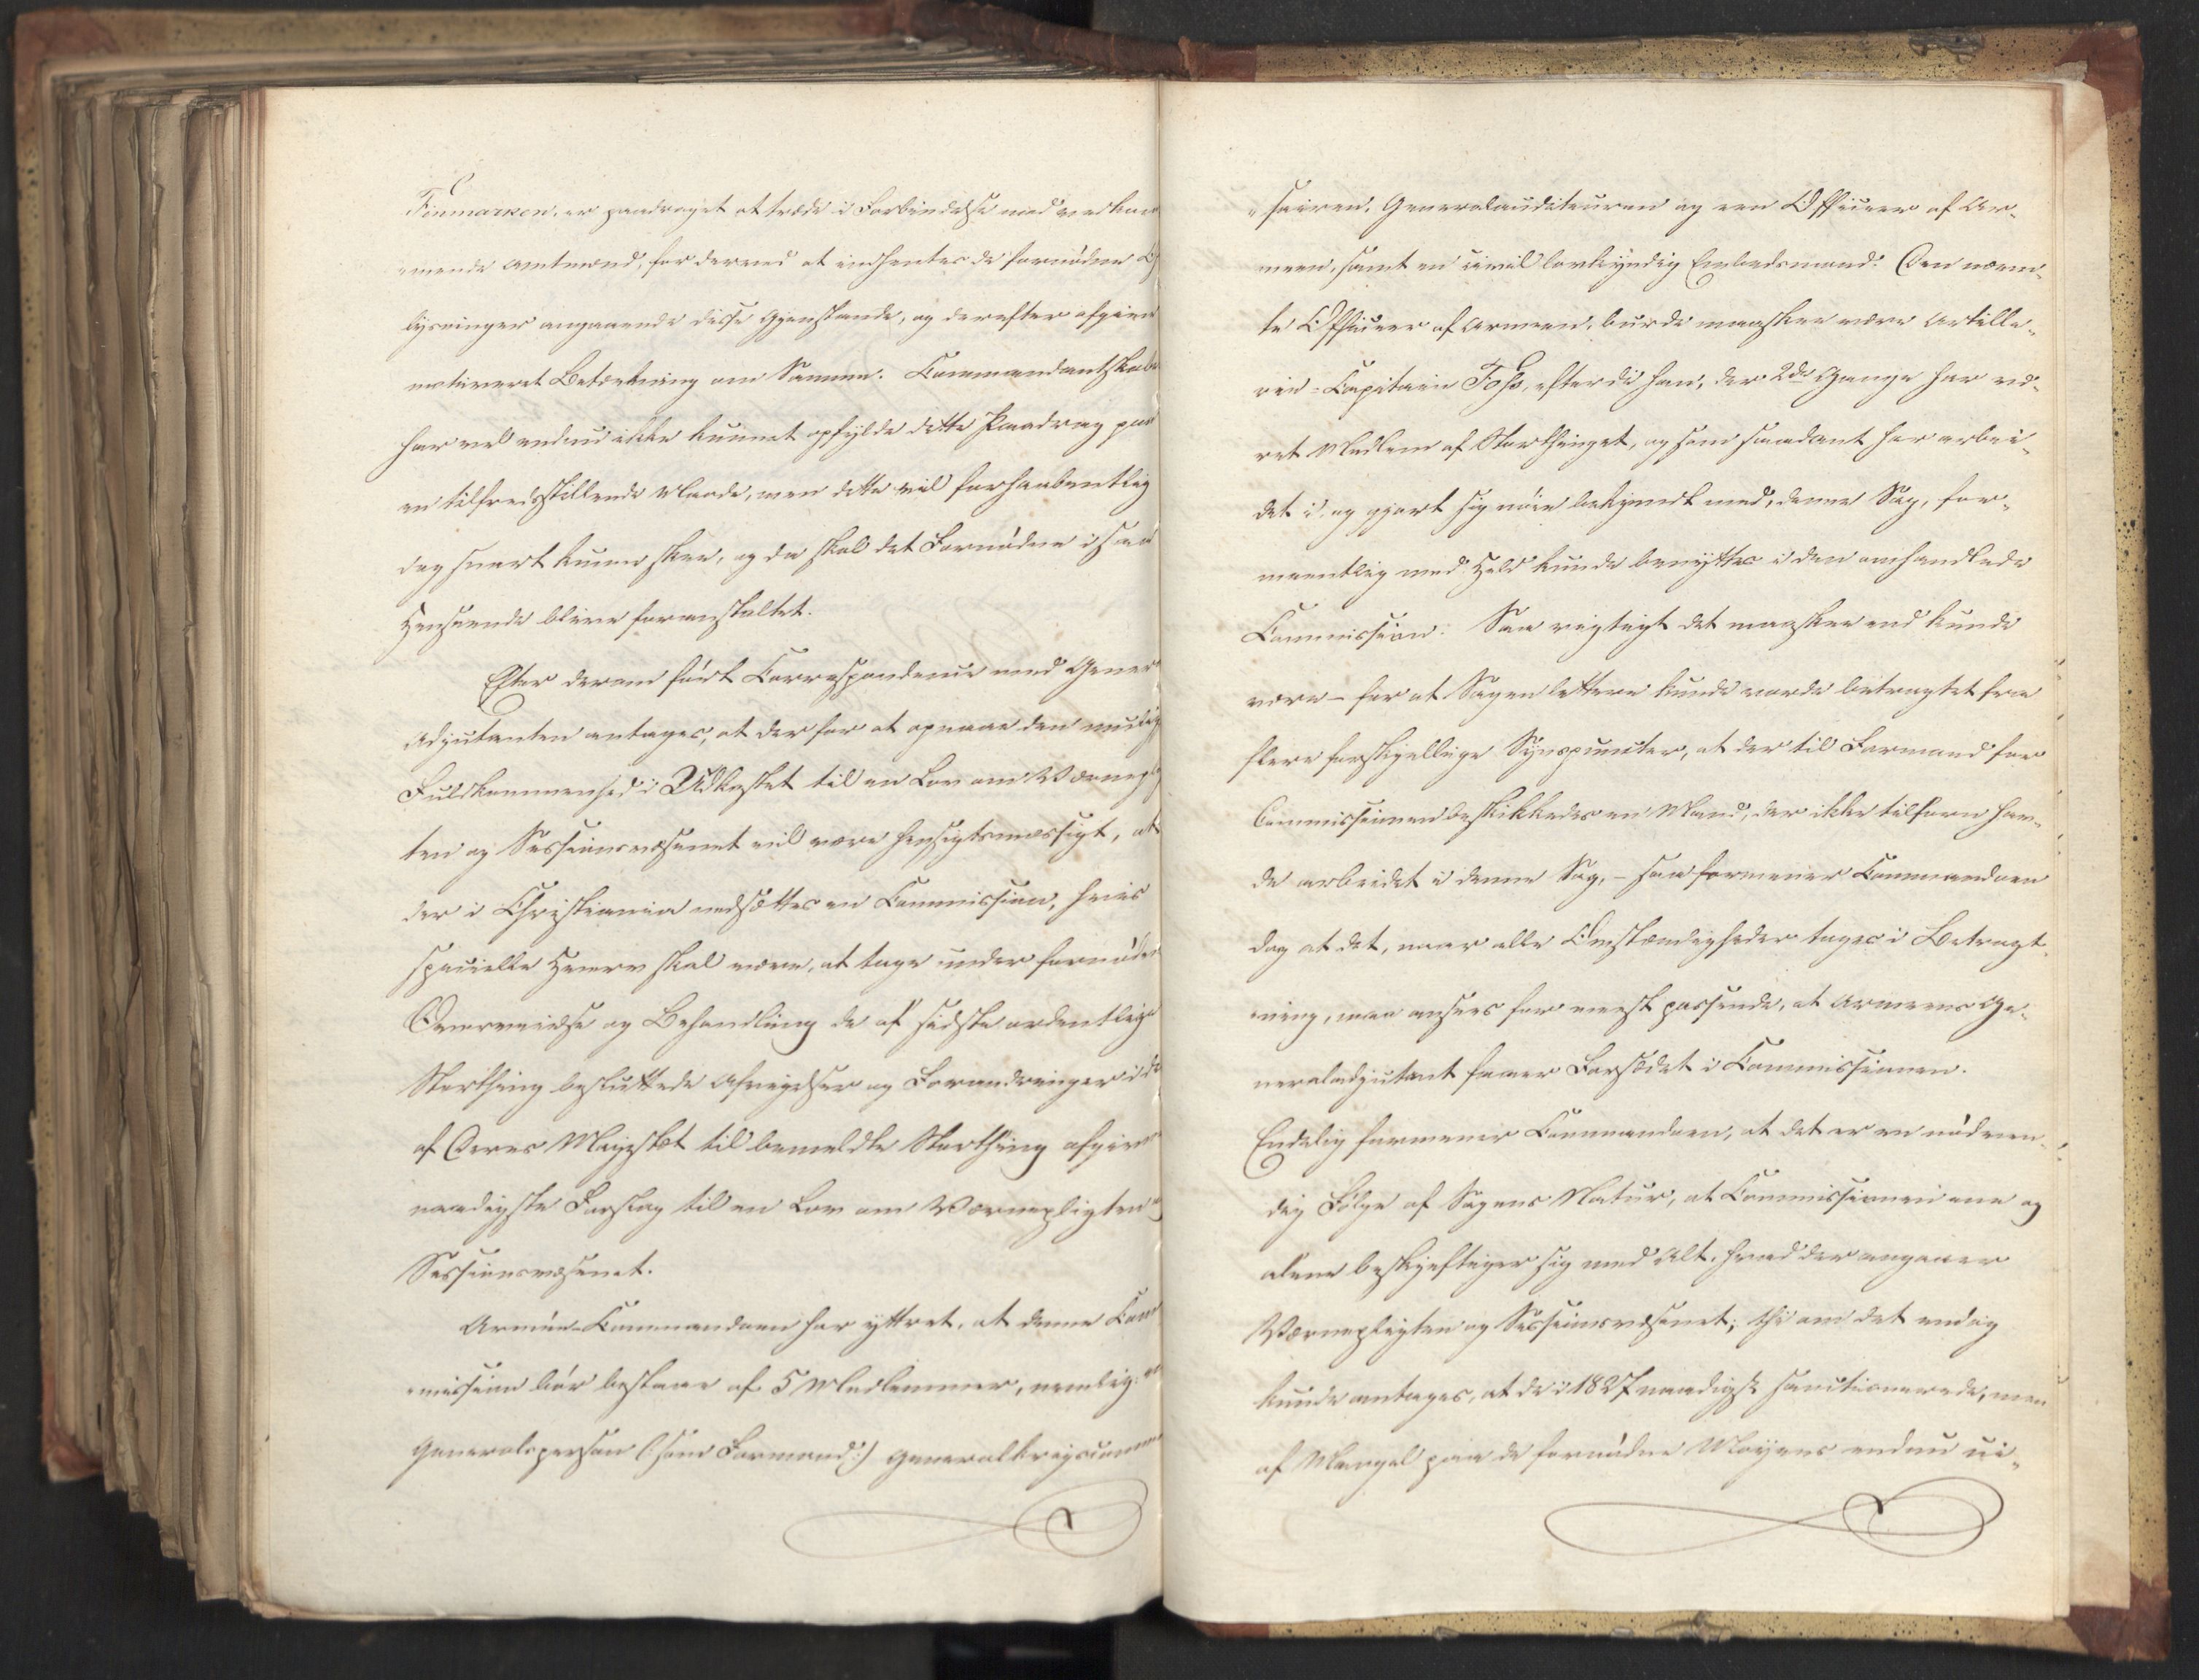 Finmarken, er paadraget at træde i Forbindelse med vedkom
mende Amtmænd, for derved at indhentes de fornødne O
lysninger angaaende disse Gjenstande, og derefter afgive
motiveret Betænkning om Samme. Commandantskabe
har vel endnu ikke kunnet opfylde dette Paadrag paa
en tilfredsstillende Maade, men dette vil forhaabentlig
dog snart kunne skee, og da skal det Fornødne i saa
Henseende blive foranstaltet.
Efter derom ført Correspondence med Gener
Adjutanten antages, at der for at opnaae den mulig
Fuldkommenhed i Udkastet til en Lov om Værneplig
ten og Sessionsvæsenet vil være hensigtsmæssigt, at
der i Christiania nedsættes en Commission, hvis
specielle Hverv skal være, at tage under fornøden
Overveielse og Behandling de af sidste ordentlige
Storthing besluttede Afvigelser og Forandringer i de
af Deres Majestæt til bemeldte Storthing afgivne
naadigste Forslag til en Lov om Værnepligten og
Sessionsvæsenet.
Armée-Commandoen har yttret, at denne Com
mission bør bestaae af 5 Medlemmer, nemlig: en
Generalsperson (:som Formand:) Generalkrigscomm
sairen, Generalauditeuren og een Officeer af Ar-
meen, samt en civil lovkyndig Embedsmand. Den nævn-
te Officeer af Armeen, burde maaskee være Artille-
rie-Capitain Foss, efterdi han, der 2de Gange har væ-
ret Medlem af Storthinget, og som saadant har arbei-
det i, og gjort sig nøie bekjendt med, denne Sag, for-
meentlig med Held kunde benyttes i den omhandlede
Commission. Saa rigtigt det maaskee end kunde
være - for at Sagen lettere kunde vorde betragtet fra
flere forskjellige Synspuncter, at der til Formand for
Commissionen beskikkedes en Mand, der ikke tilforn hav-
de arbeidet i denne Sag, - saa formener Commandoen
dog at det, naar alle Omstændigheder tages i Betragt-
ning, maa ansees for meest passende, at Armeens Ge-
neraladjutant faaer Forsædet i Commissionen.
Endelig formener Commandoen, at det er en nødven-
dig Følge af Sagens Natur, at Commissionen ene og
alene beskjeftiger sig med Alt, hvad der angaaer
Værnepligten og Sessionsvæsenet; thi om det endog
kunde antages, at de i 1827 naadigst sanctionerede, men
af Mangel paa de fornødne Moyens endnu ui-